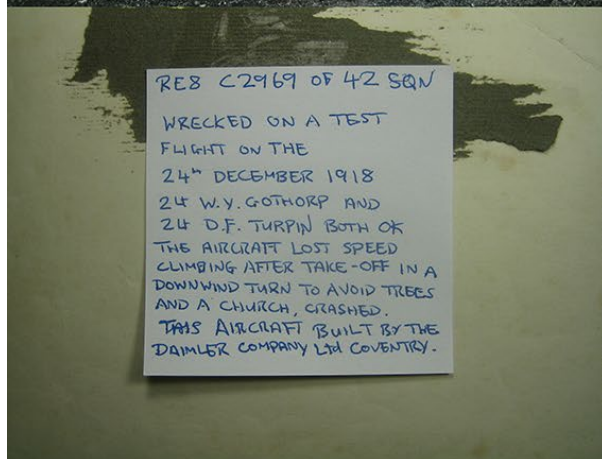 RE8 C2969 OF 42 SQN
WRECKED ON A TEST
FLIGHT ON THE
24TH DECEMBER 1918
2Lt W.Y. GOTHORP AND
2Lt D.F. TURPIN BOTH OK
THE AIRCRAFT LOST SPEED
CLIMBING AFTER TAKE-OFF IN A
DOWNWIND TURN TO AVOID TREES
AND A CHURCH, CRASHED.
THIS AIRCRAFT BUILT BY THE
DAIMLER COMPANY Ltd COVENTRY.